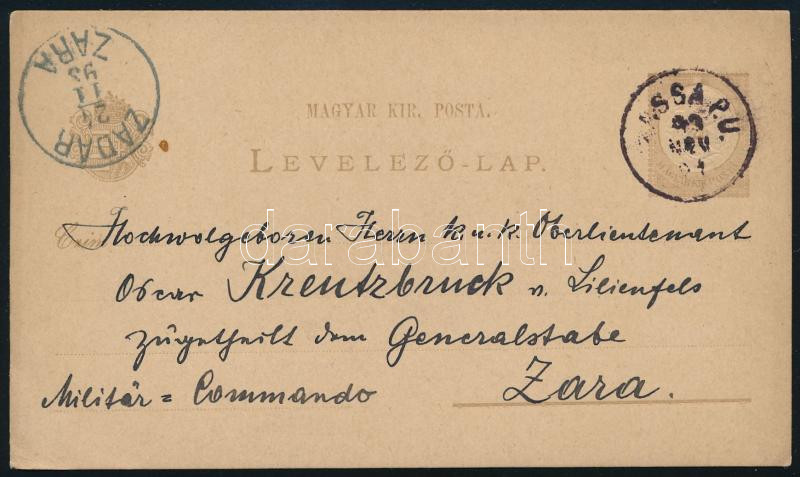 ZADAR
24
11
93
ZARA
MAGYAR KIR. POSTA.
LEVELEZŐ-LAP.
KASSA P.U.
NOV
darabanth
Hochwolgeboren Herrn k. u. k. Oberlieutenant
Oscar Kreutzbruck v. Lilienfels
zugetheilt dem Generalstabe
Militär = Commando Zara.